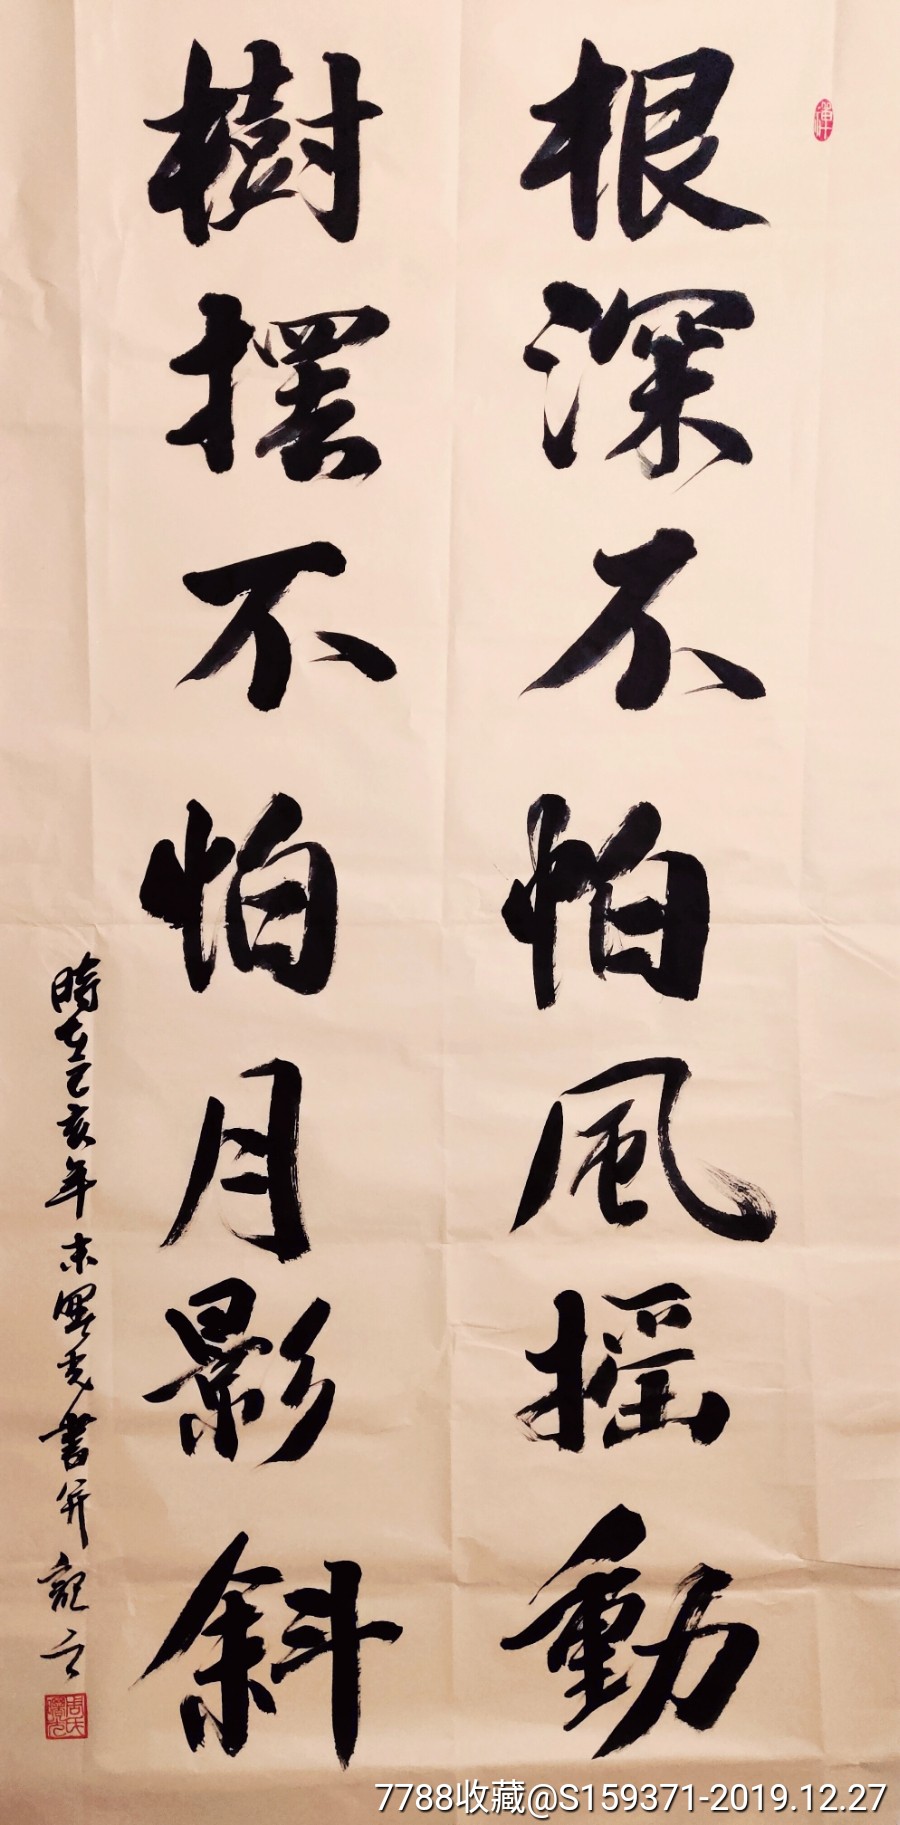 根深不怕風摇動
樹摆不怕月影斜
時在己亥年末 光書并記之
7788收藏@S159371-2019.12.27